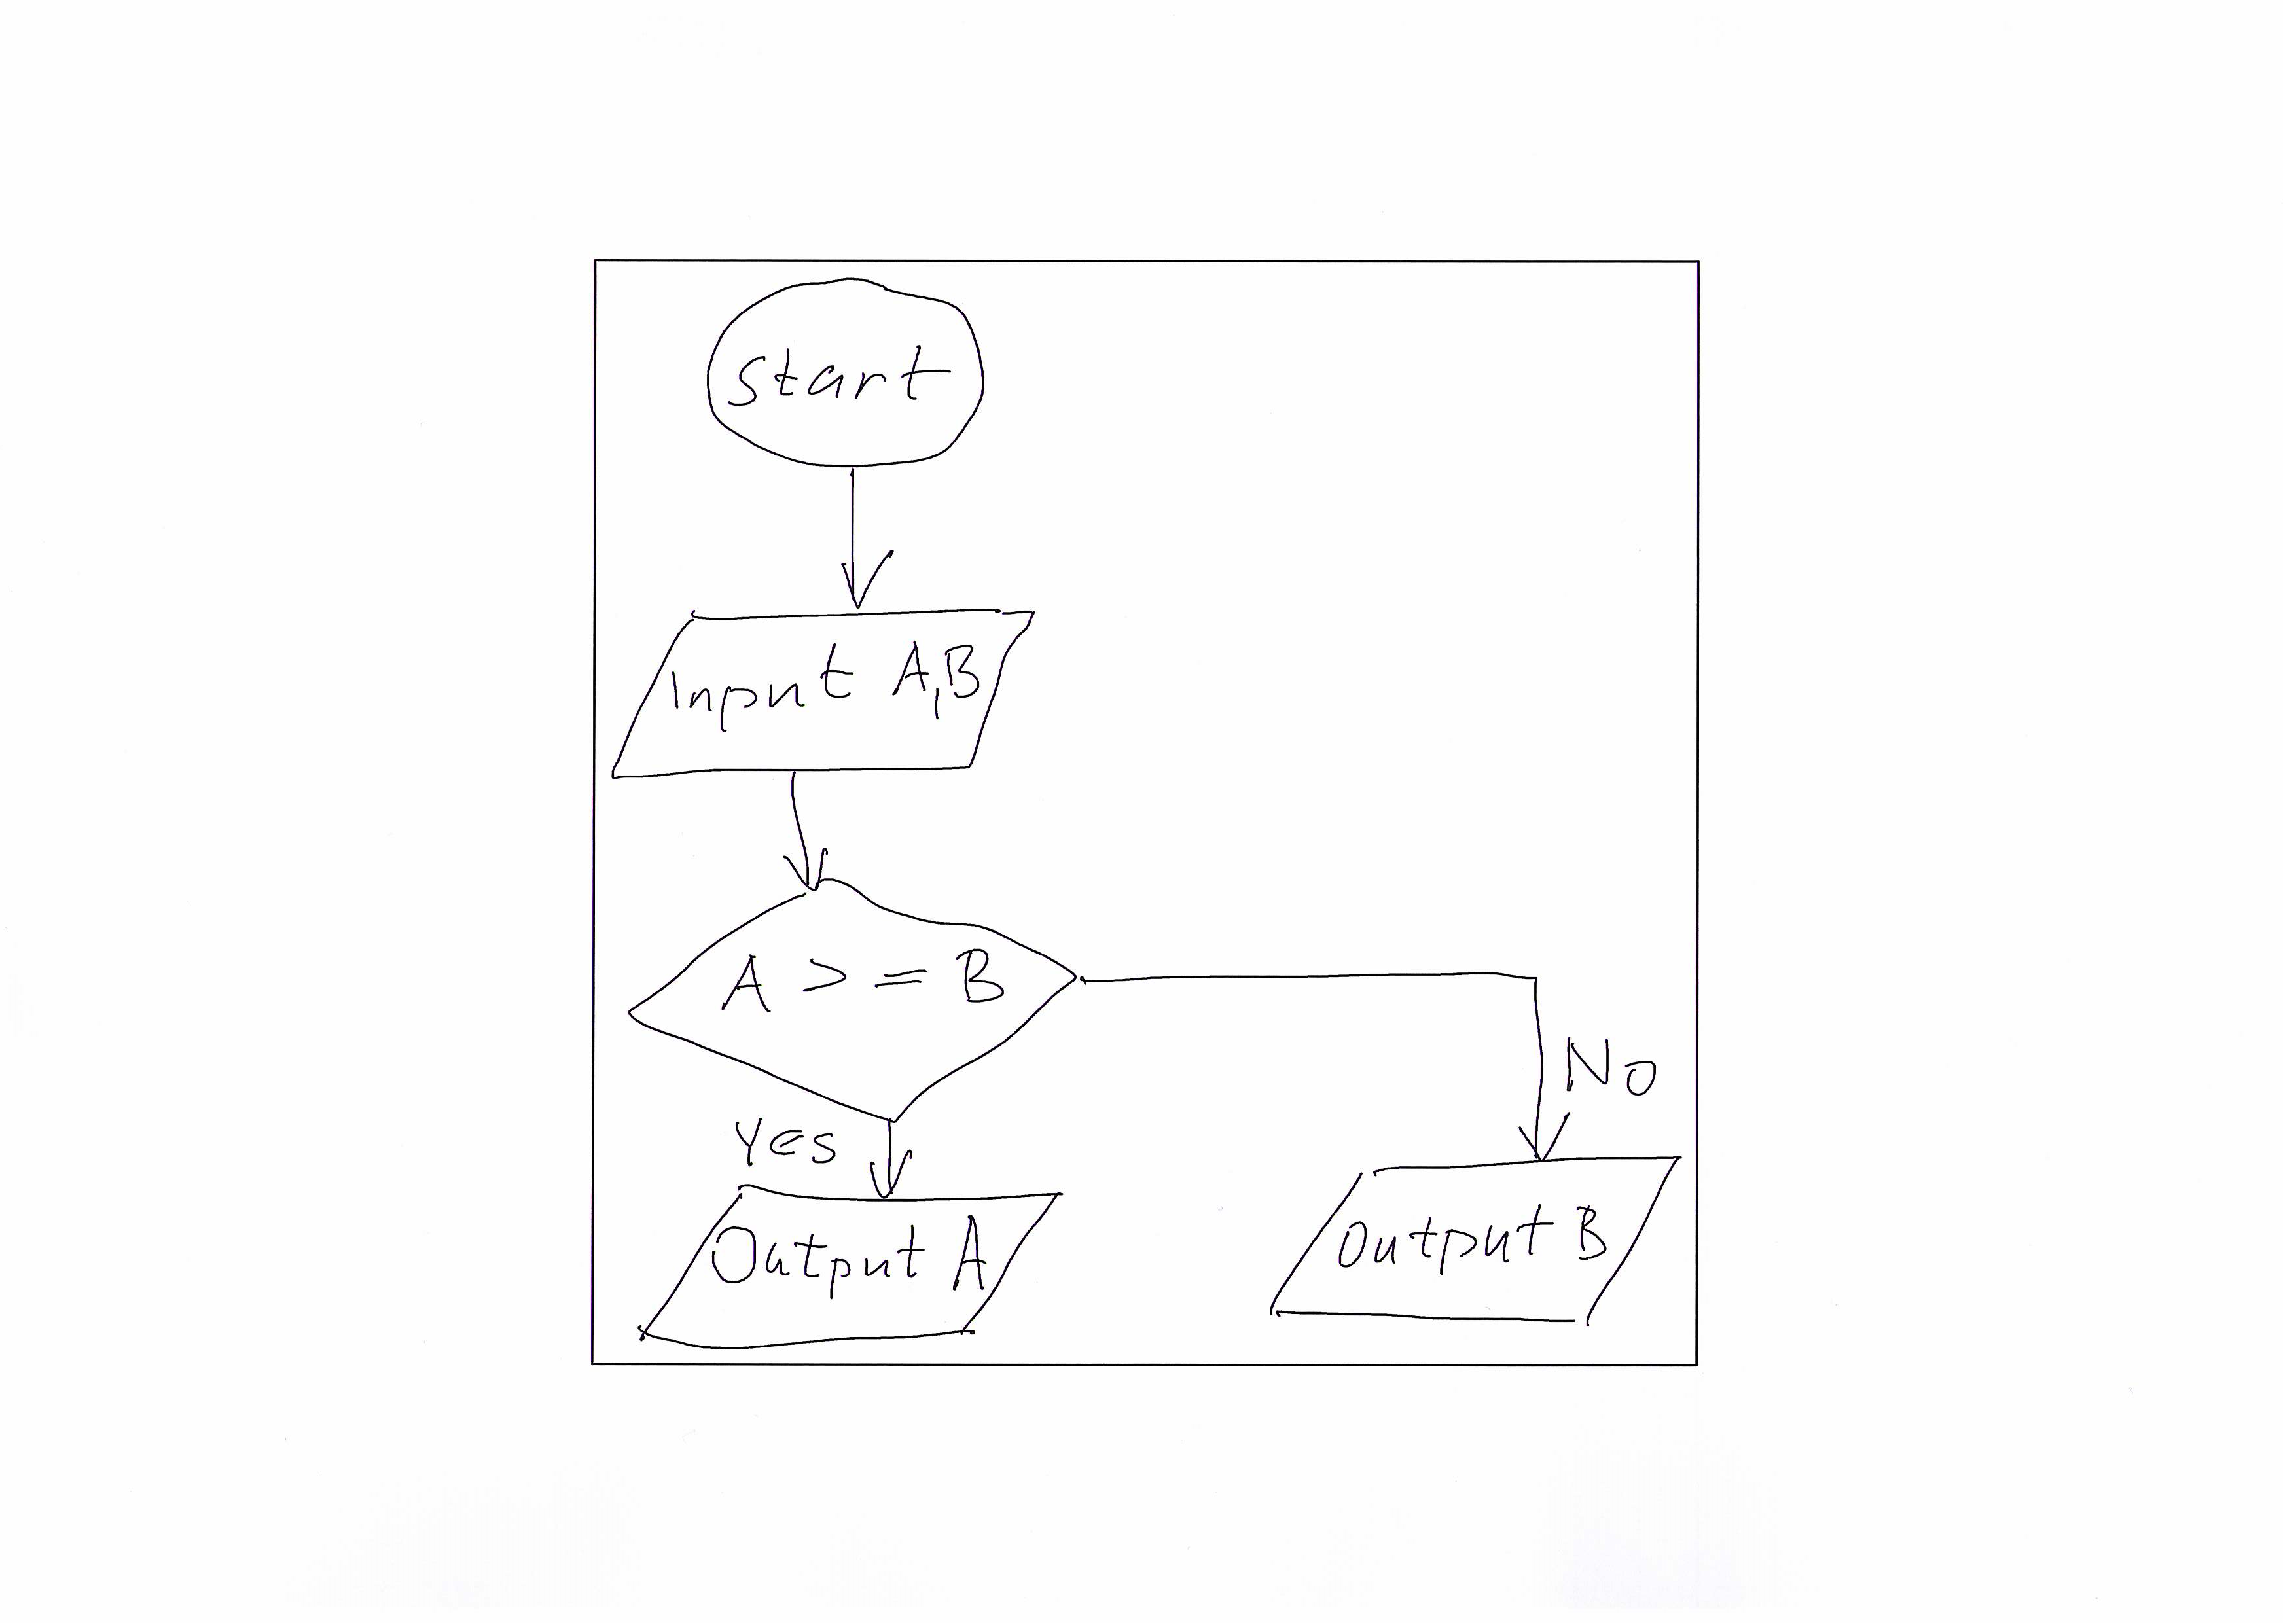 Start
Input A,B
A >= B
YES
NO
Output A
Output B